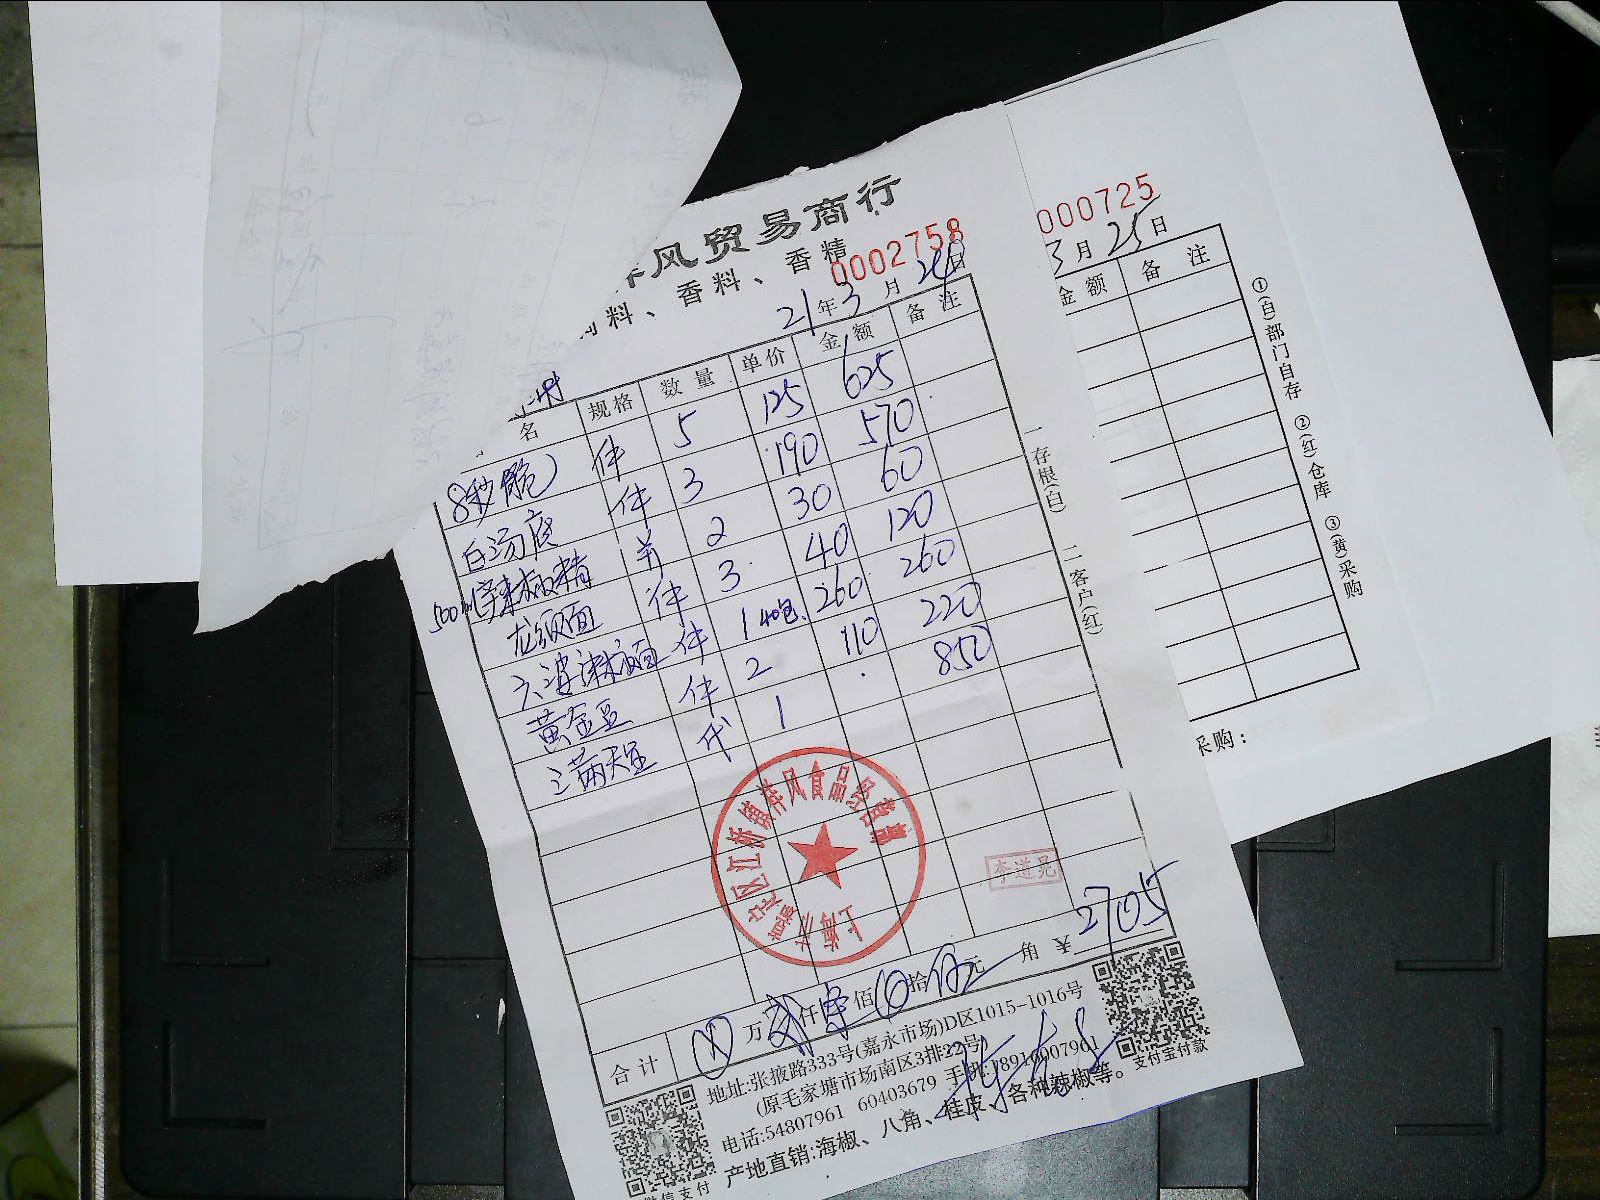 风贸易商行
料、香料、香精
0002758
21年3月24日
名 规格 数量 单价 金额 备注
8秒脆 件 5 125 625
白汤底 件 3 190 570
500 辣椒精 2 30 60
龙须面 件 3 40 120
件 1 40包 260 260
黄金豆 件 2 110 220
代 1 850
上海市嘉定区江桥镇 风食品经营部
李道晃
合计 ⊗万贰仟 佰 拾伍元 角 ¥2705
地址:张掖路333号(嘉永市场)D区1015-1016号
(原毛家塘市场南区3排22号)
电话:54807961 60403679 手机:18916007961
产地直销:海椒、八角、桂皮、各种辣椒等。
微信支付
支付宝付款
一存根(白) 二客户(红)
000725
3月25日
金额 备注
①(白)部门自存 ②(红)仓库 ③(黄)采购
采购: